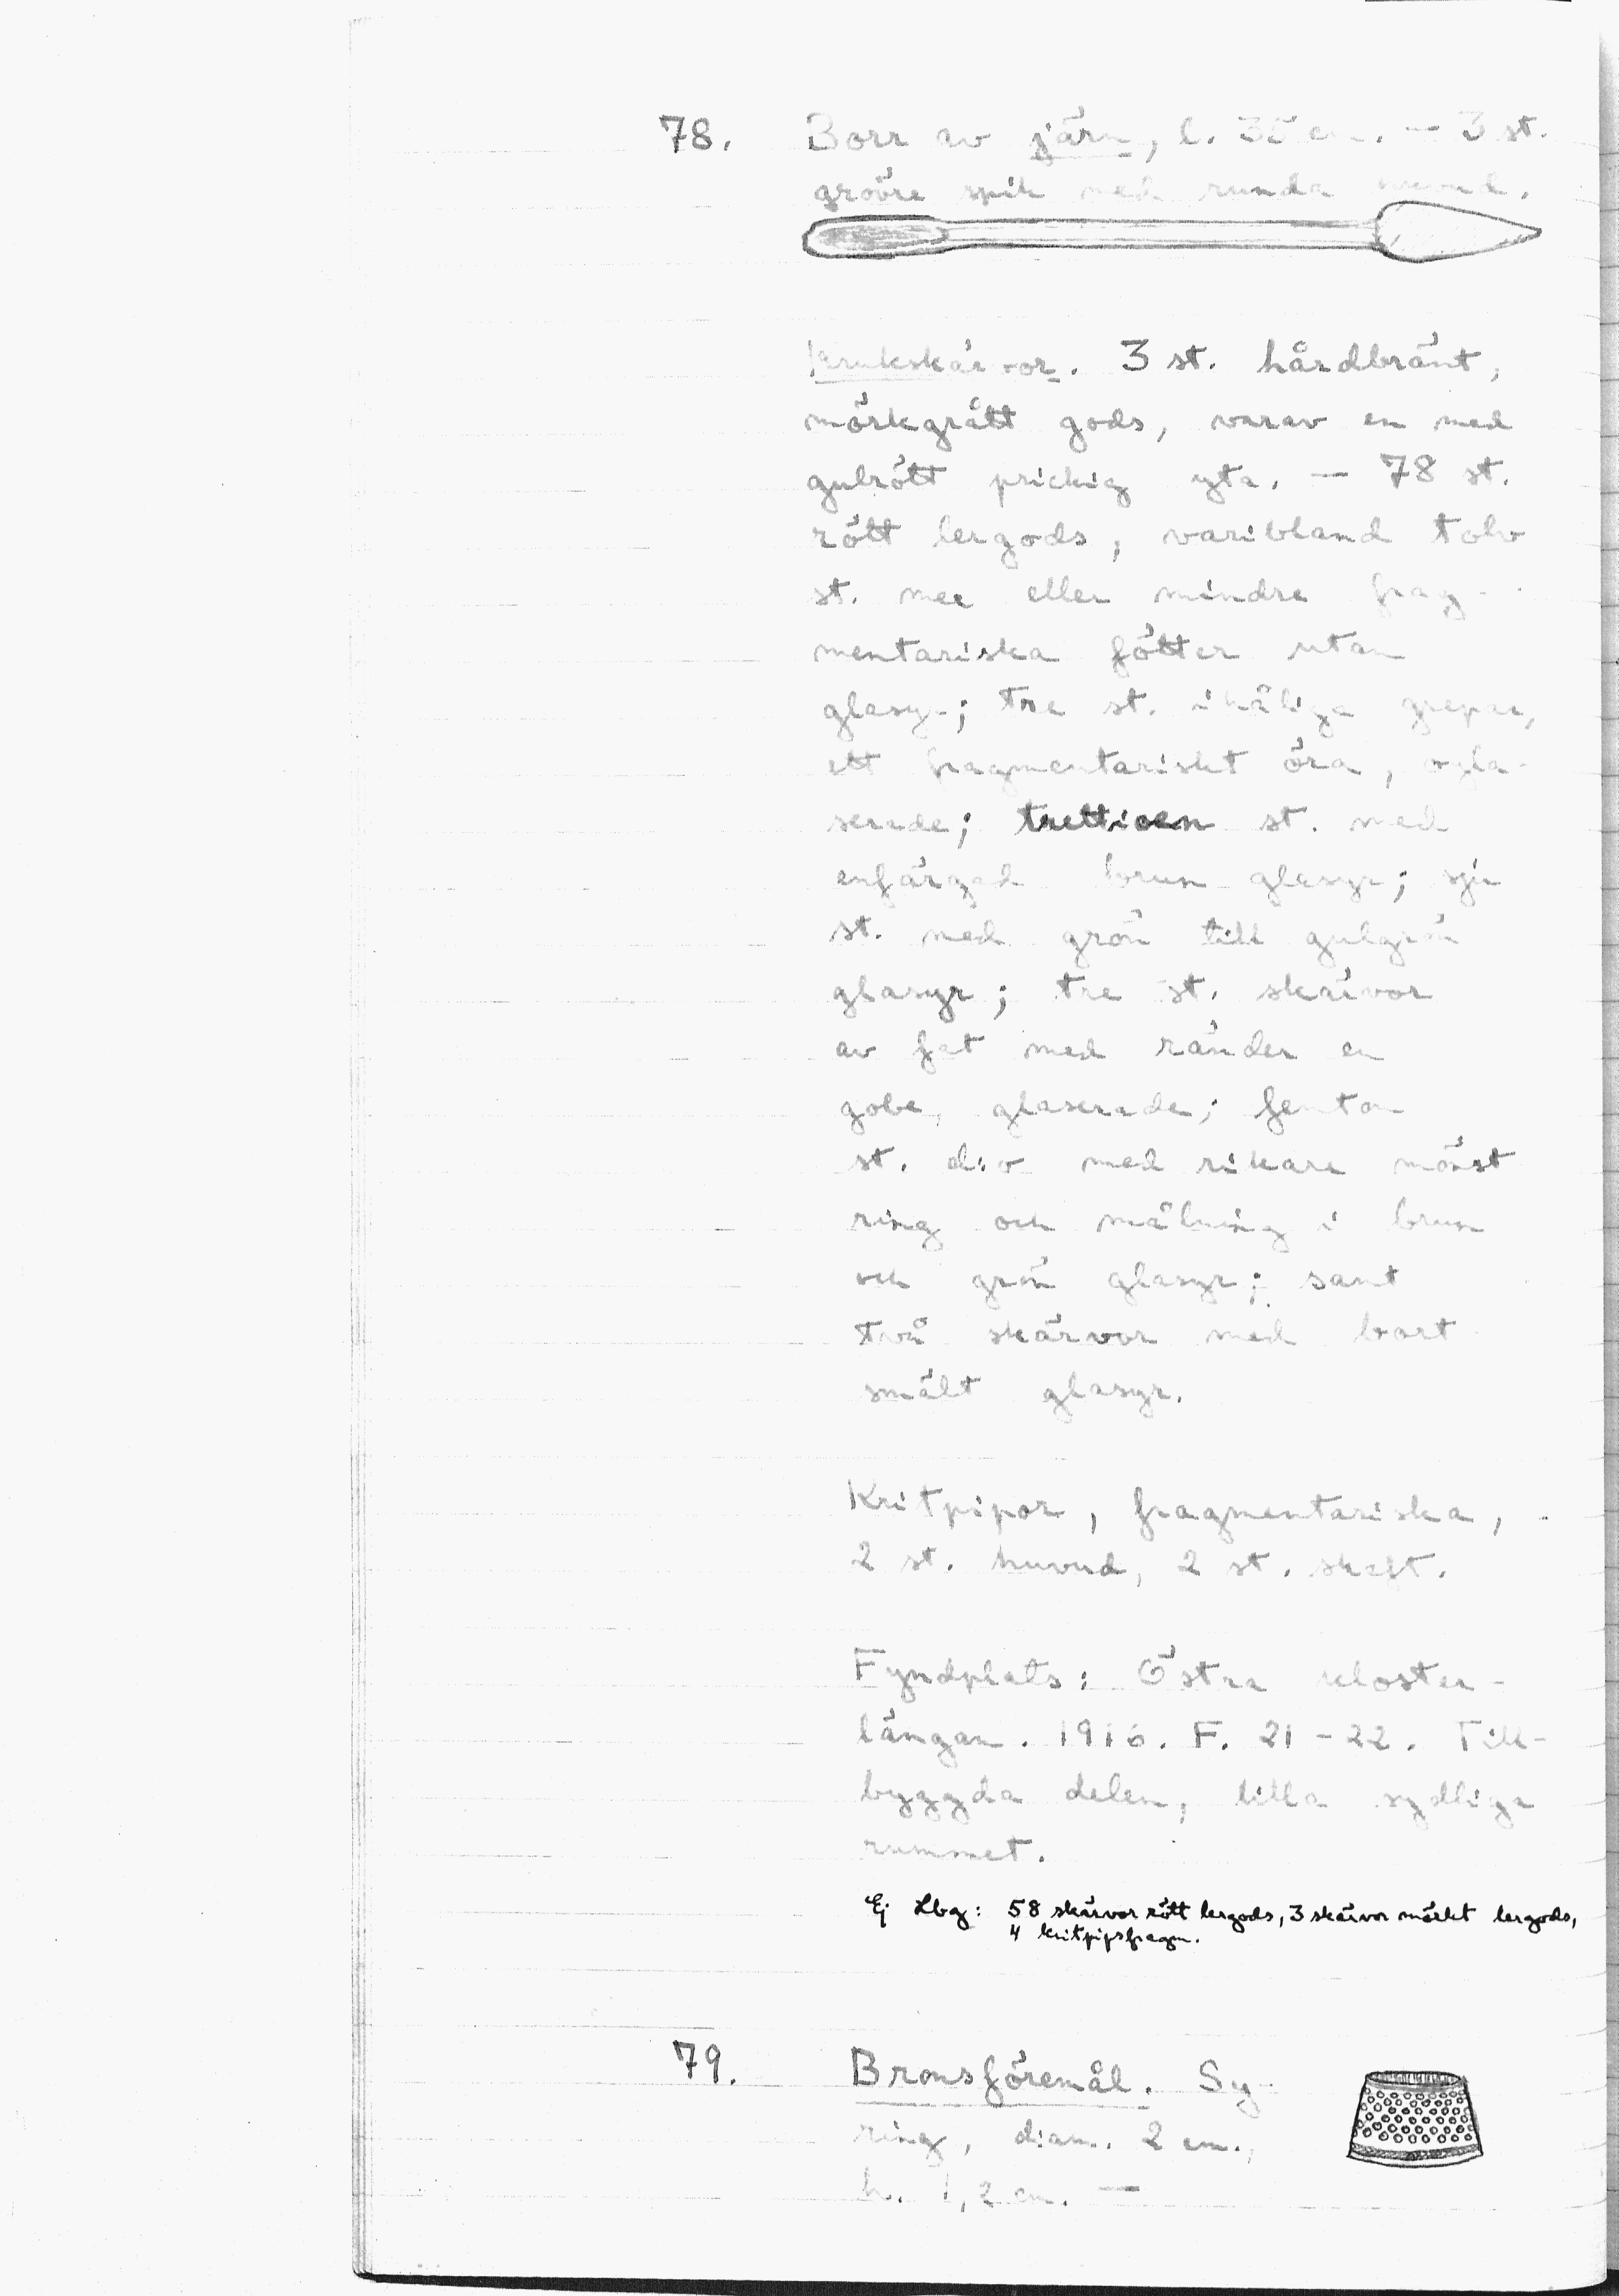 78. Borr av järn, l. 35 cm. — 3 st.
grövre spik med runda huvud.
Krukskärvor. 3 st. hårdbränt,
mörkgrått gods, varav en med
gulrött prickig yta. — 78 st.
rött lergods, varibland tolv
st. mer eller mindre frag-
mentariska fötter utan
glasyr; tre st. ihåliga grepar,
ett fragmentariskt öra, ogla-
serade; trettioen st. med
enfärgad brun glasyr; sju
st. med grön till gulgrön
glasyr; tre st. skärvor
av fat med ränder en
gobe, glaserade; femton
st. d:o med rikare mönst
ring och målning i brun
och grön glasyr; samt
två skärvor med bort
smält glasyr.
Kritpipor, fragmentariska,
2 st. huvud, 2 st. skaft.
Fyndplats: Östra kloster-
längan. 1916. F. 21-22. Till-
byggda delen, lilla sydliga
rummet.
Ej Lbg: 58 skärvor rött lergods, 3 skärvor mörkt lergods,
4 kritpipsfragm.
79. Bronsföremål. Sy-
ring, diam. 2 cm.,
h. 1,2 cm. —